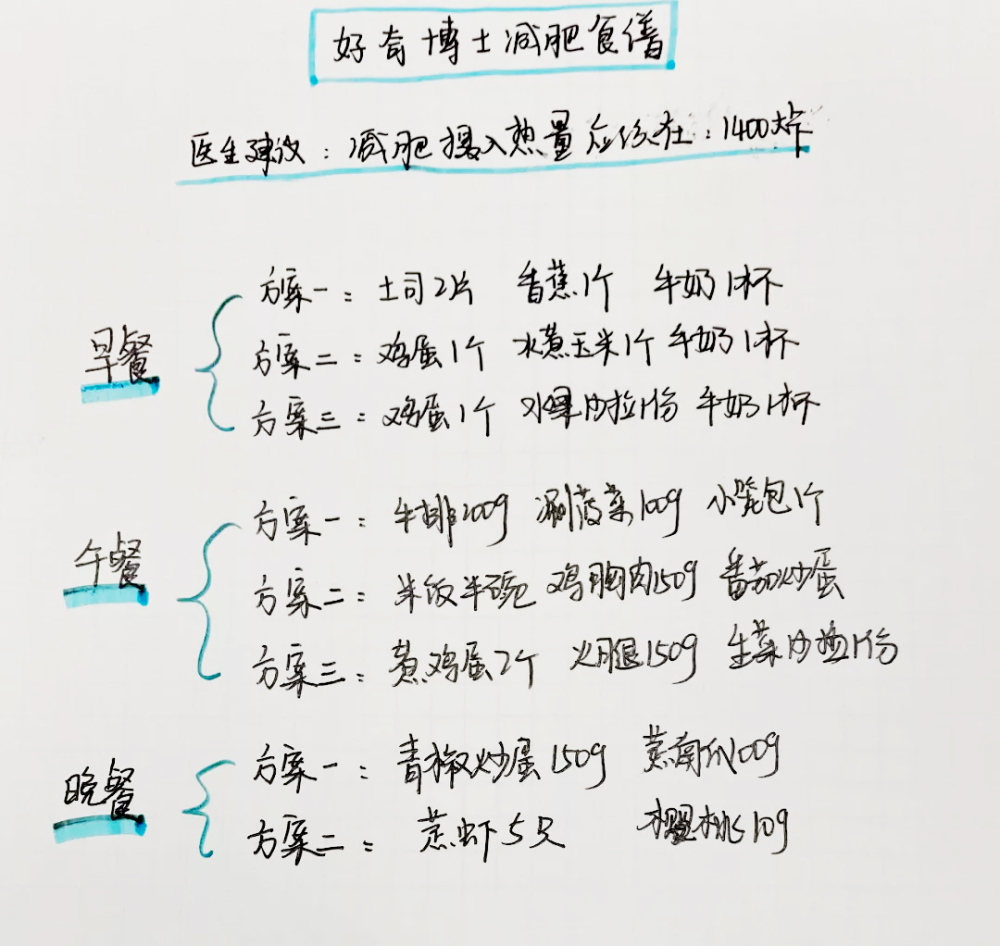 好奇博士减肥食谱
医生建议：减肥摄入热量应仅在：1400大卡
早餐
方案一：土司2片 香蕉1个 牛奶1杯
方案二：鸡蛋1个 水煮玉米1个 牛奶1杯
方案三：鸡蛋1个 水果沙拉1份 牛奶1杯
午餐
方案一：牛排200g 涮菠菜100g 小笼包1个
方案二：米饭半碗 鸡胸肉150g 番茄炒蛋
方案三：煮鸡蛋2个 火腿150g 生菜沙拉1份
晚餐
方案一：青椒炒蛋150g 蒸南瓜100g
方案二：蒸虾5只 樱桃10g